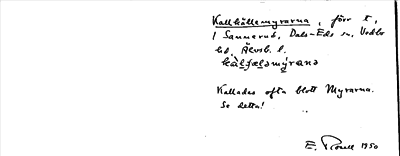 Kallkällemyrarna, förr t,
1 Sannerud, Dals-Eds sn, Vedbo
hd, Älvsb. l.
Kallades ofta blott Myrarna.
Se detta!
E. 1950